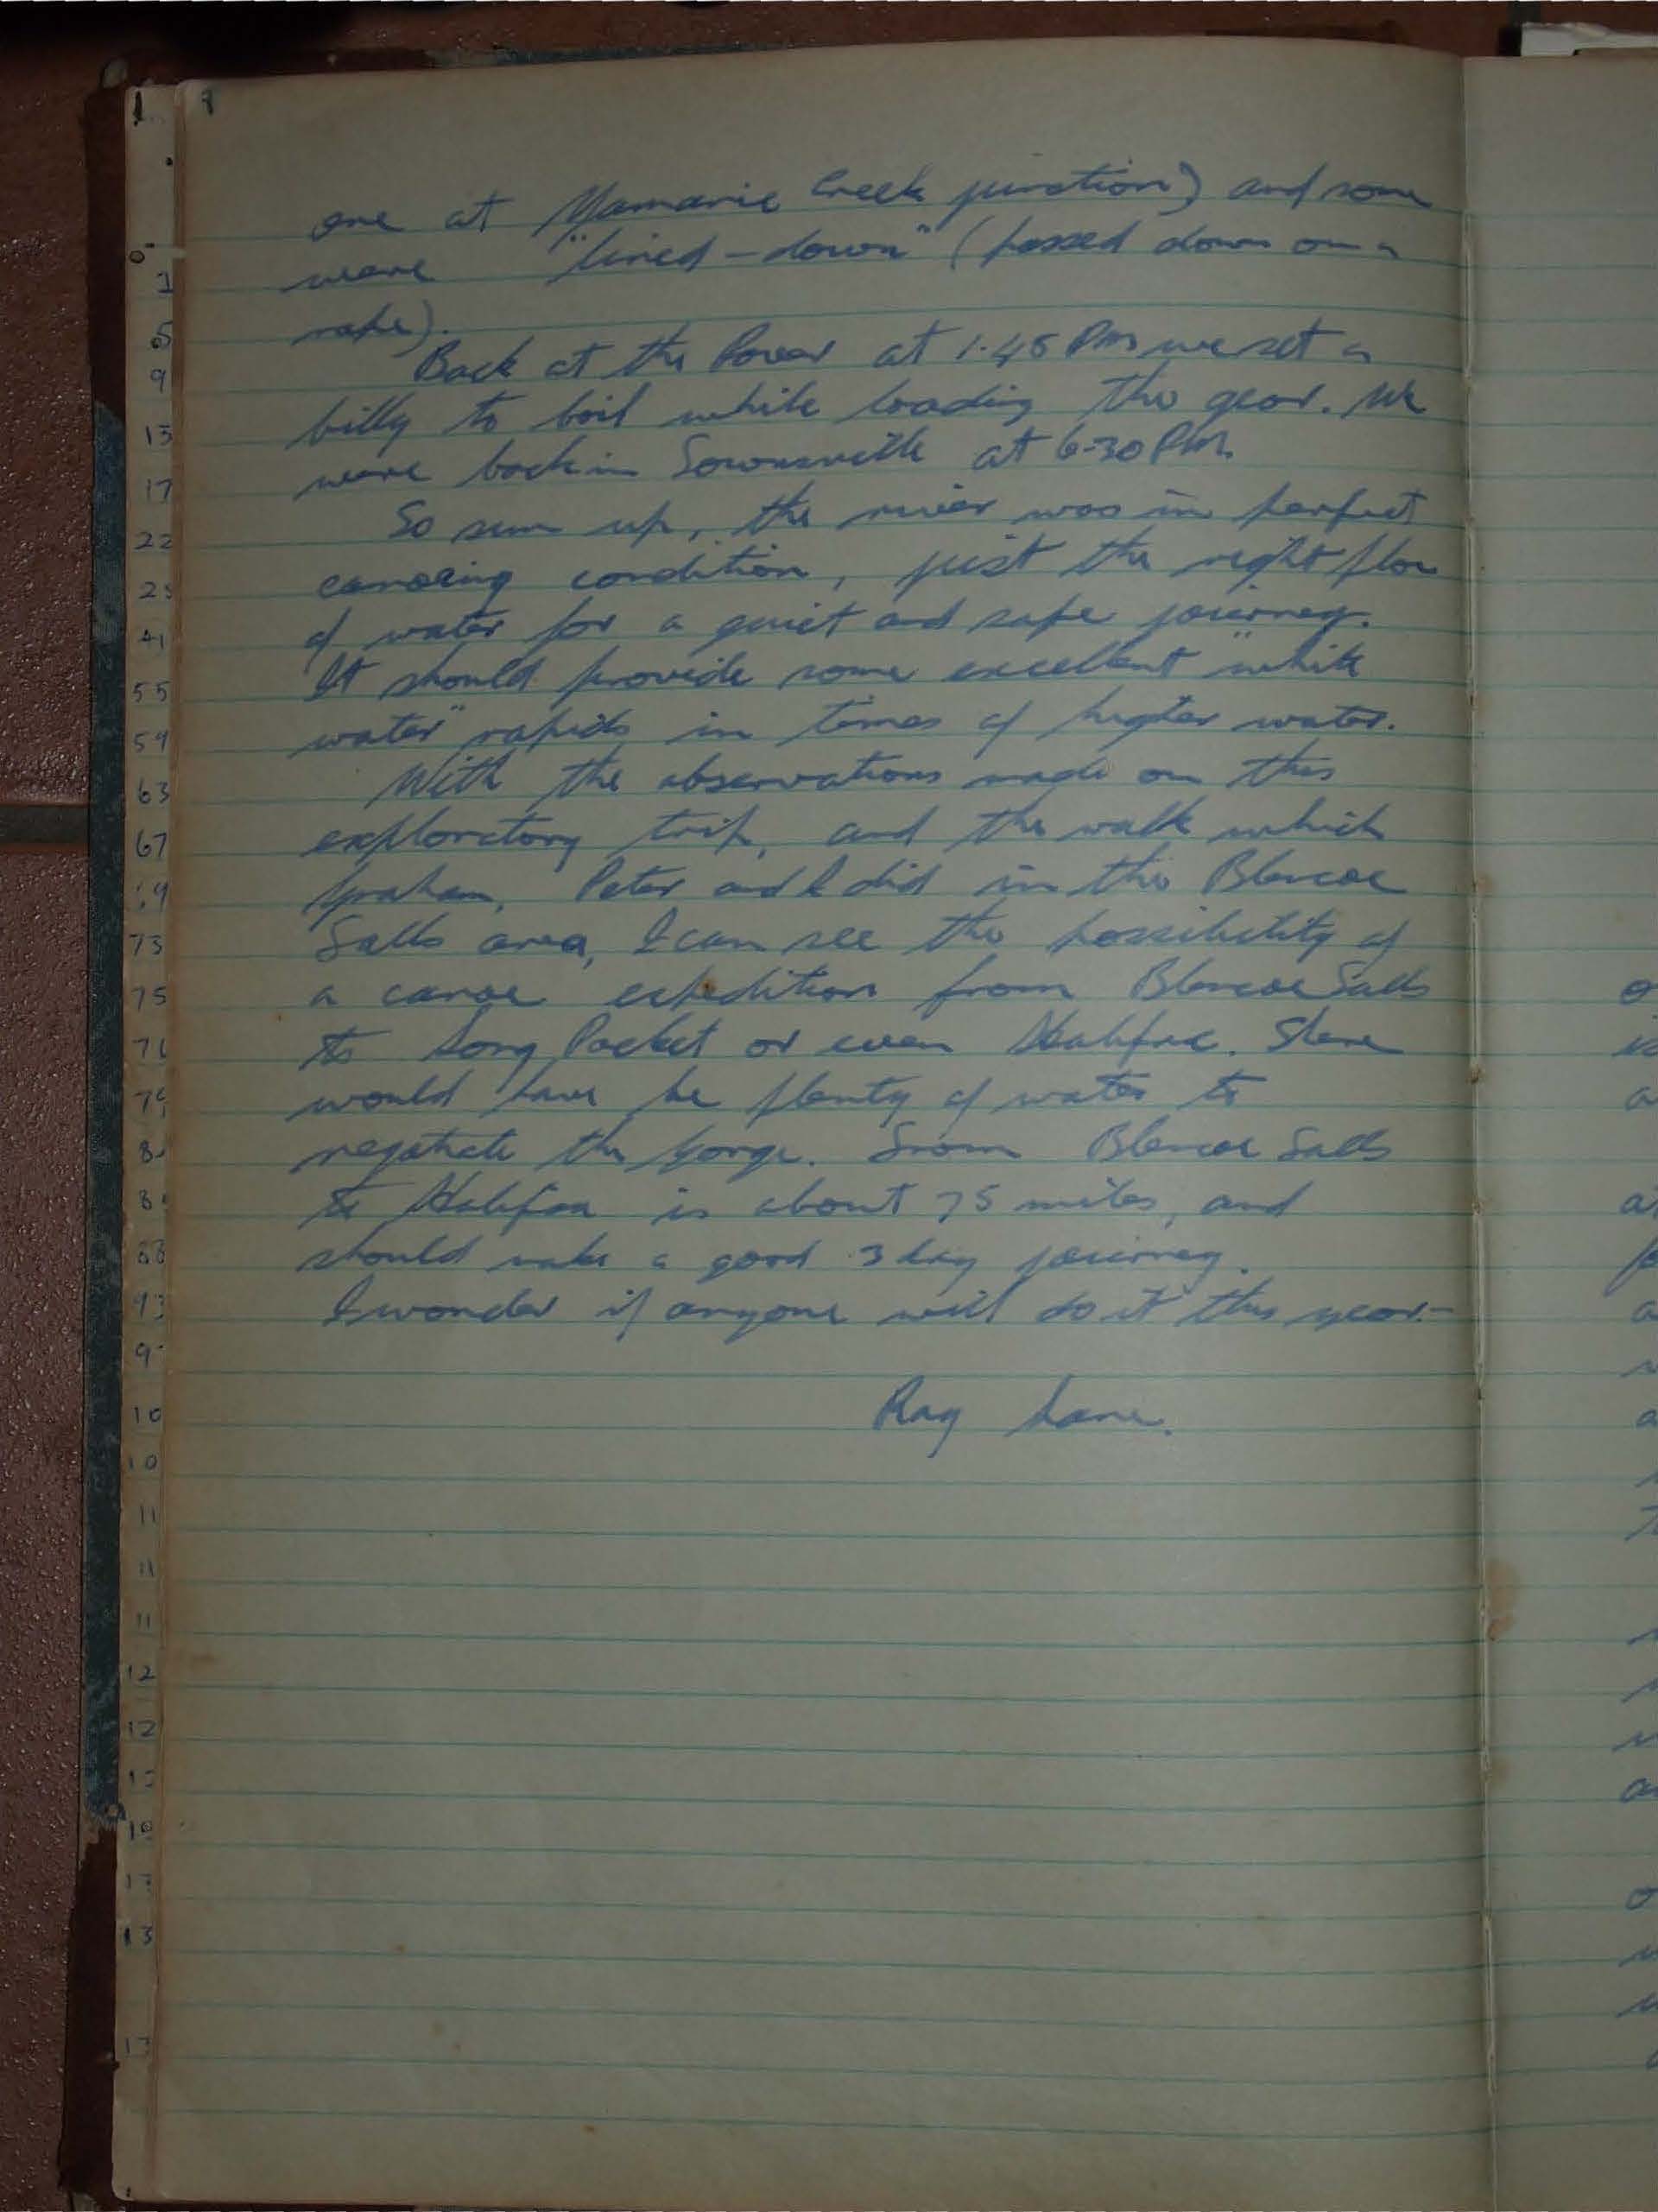 one at Yamanie Creek junction) and some
were "lined-down" (passed down on a
rope).
Back at the Rover at 1.45 PM we set a
billy to boil while loading the gear. We
were back in Townsville at 6-30 PM.
To sum up, the river was in perfect
canoeing condition, just the right flow
of water for a quiet and safe journey.
It should provide some excellent "white
water" rapids in times of higher water.
With the observations made on this
exploratory trip, and the walk which
Graham, Peter and I did in the Blencoe
Falls area, I can see the possibility of
a canoe expedition from Blencoe Falls
to Long Pocket or even Halifax. There
would have be plenty of water to
negotiate the gorge. From Blencoe Falls
to Halifax is about 75 miles, and
should make a good 3 day journey.
I wonder if anyone will do it this year.-
Ray Lane.